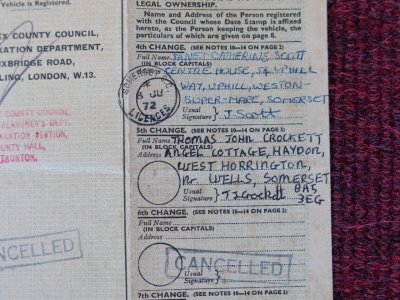 Vehicle is Registered.
EX COUNTY COUNCIL,
AXATION DEPARTMENT,
UXBRIDGE ROAD,
LING, LONDON, W.13.
COUNTY COUNCIL
TREASURER'S DEPT.
TAXATION SECTION,
COUNTY HALL
TAUNTON.
CANCELLED
LEGAL OWNERSHIP.
Name and Address of the Person registered
with the Council whose Date Stamp is affixed
hereto, as the Person keeping the vehicle,
the particulars of which are given on page 8.
4th CHANGE. (SEE NOTES 10—14 ON PAGE 2)
Full Name JANET CATHERINE SCOTT
(IN BLOCK CAPITALS)
CENTRE HOUSE, UPHILL
WAY, UPHILL, WESTON
SUPER-MARE, SOMERSET
Usual Signature } J Scott
SOMERSET C.C.
JU
72
LICENCES
5th CHANGE. (SEE NOTES 10—14 ON PAGE 2)
Full Name THOMAS JOHN CROCKETT
(IN BLOCK CAPITALS)
Address ANGEL COTTAGE, HAYDON,
WEST HORRINGTON,
Nr. WELLS, SOMERSET
BA5
3EG
Usual Signature } T J Crockett
6th CHANGE. (SEE NOTES 10—14 ON PAGE 2)
Full Name
(IN BLOCK CAPITALS)
Address
CANCELLED
Usual Signature }
7th CHANGE. (SEE NOTES 10—14 ON PAGE 2)